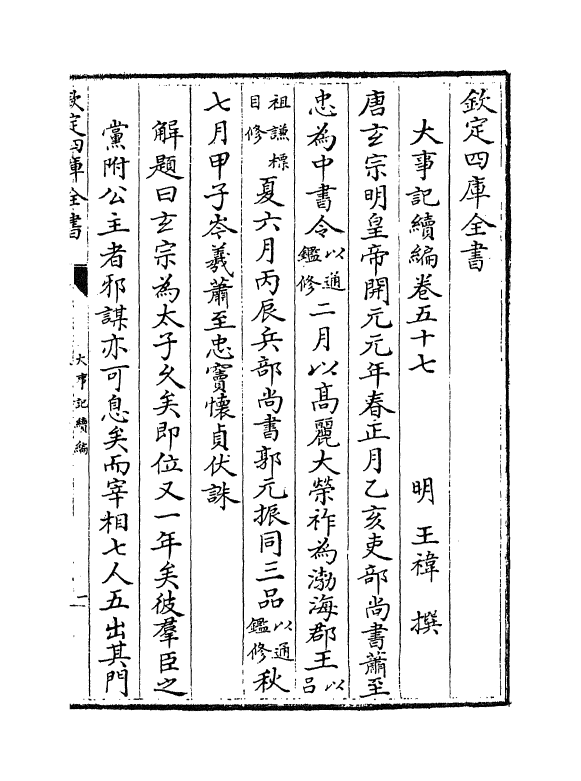 欽定四庫全書
大事記續編卷五十七 明 王禕 撰
唐玄宗明皇帝開元元年春正月乙亥吏部尚書蕭至
忠為中書令以通鑑修二月以髙麗大榮祚為渤海郡王以吕
祖謙標目修夏六月丙辰兵部尚書郭元振同三品以通鑑修秋
七月甲子岑羲蕭至忠竇懷貞伏誅
解題曰玄宗為太子久矣即位又一年矣彼羣臣之
黨附公主者邪謀亦可息矣而宰相七人五出其門
欽定四庫全書
大事記續編
一